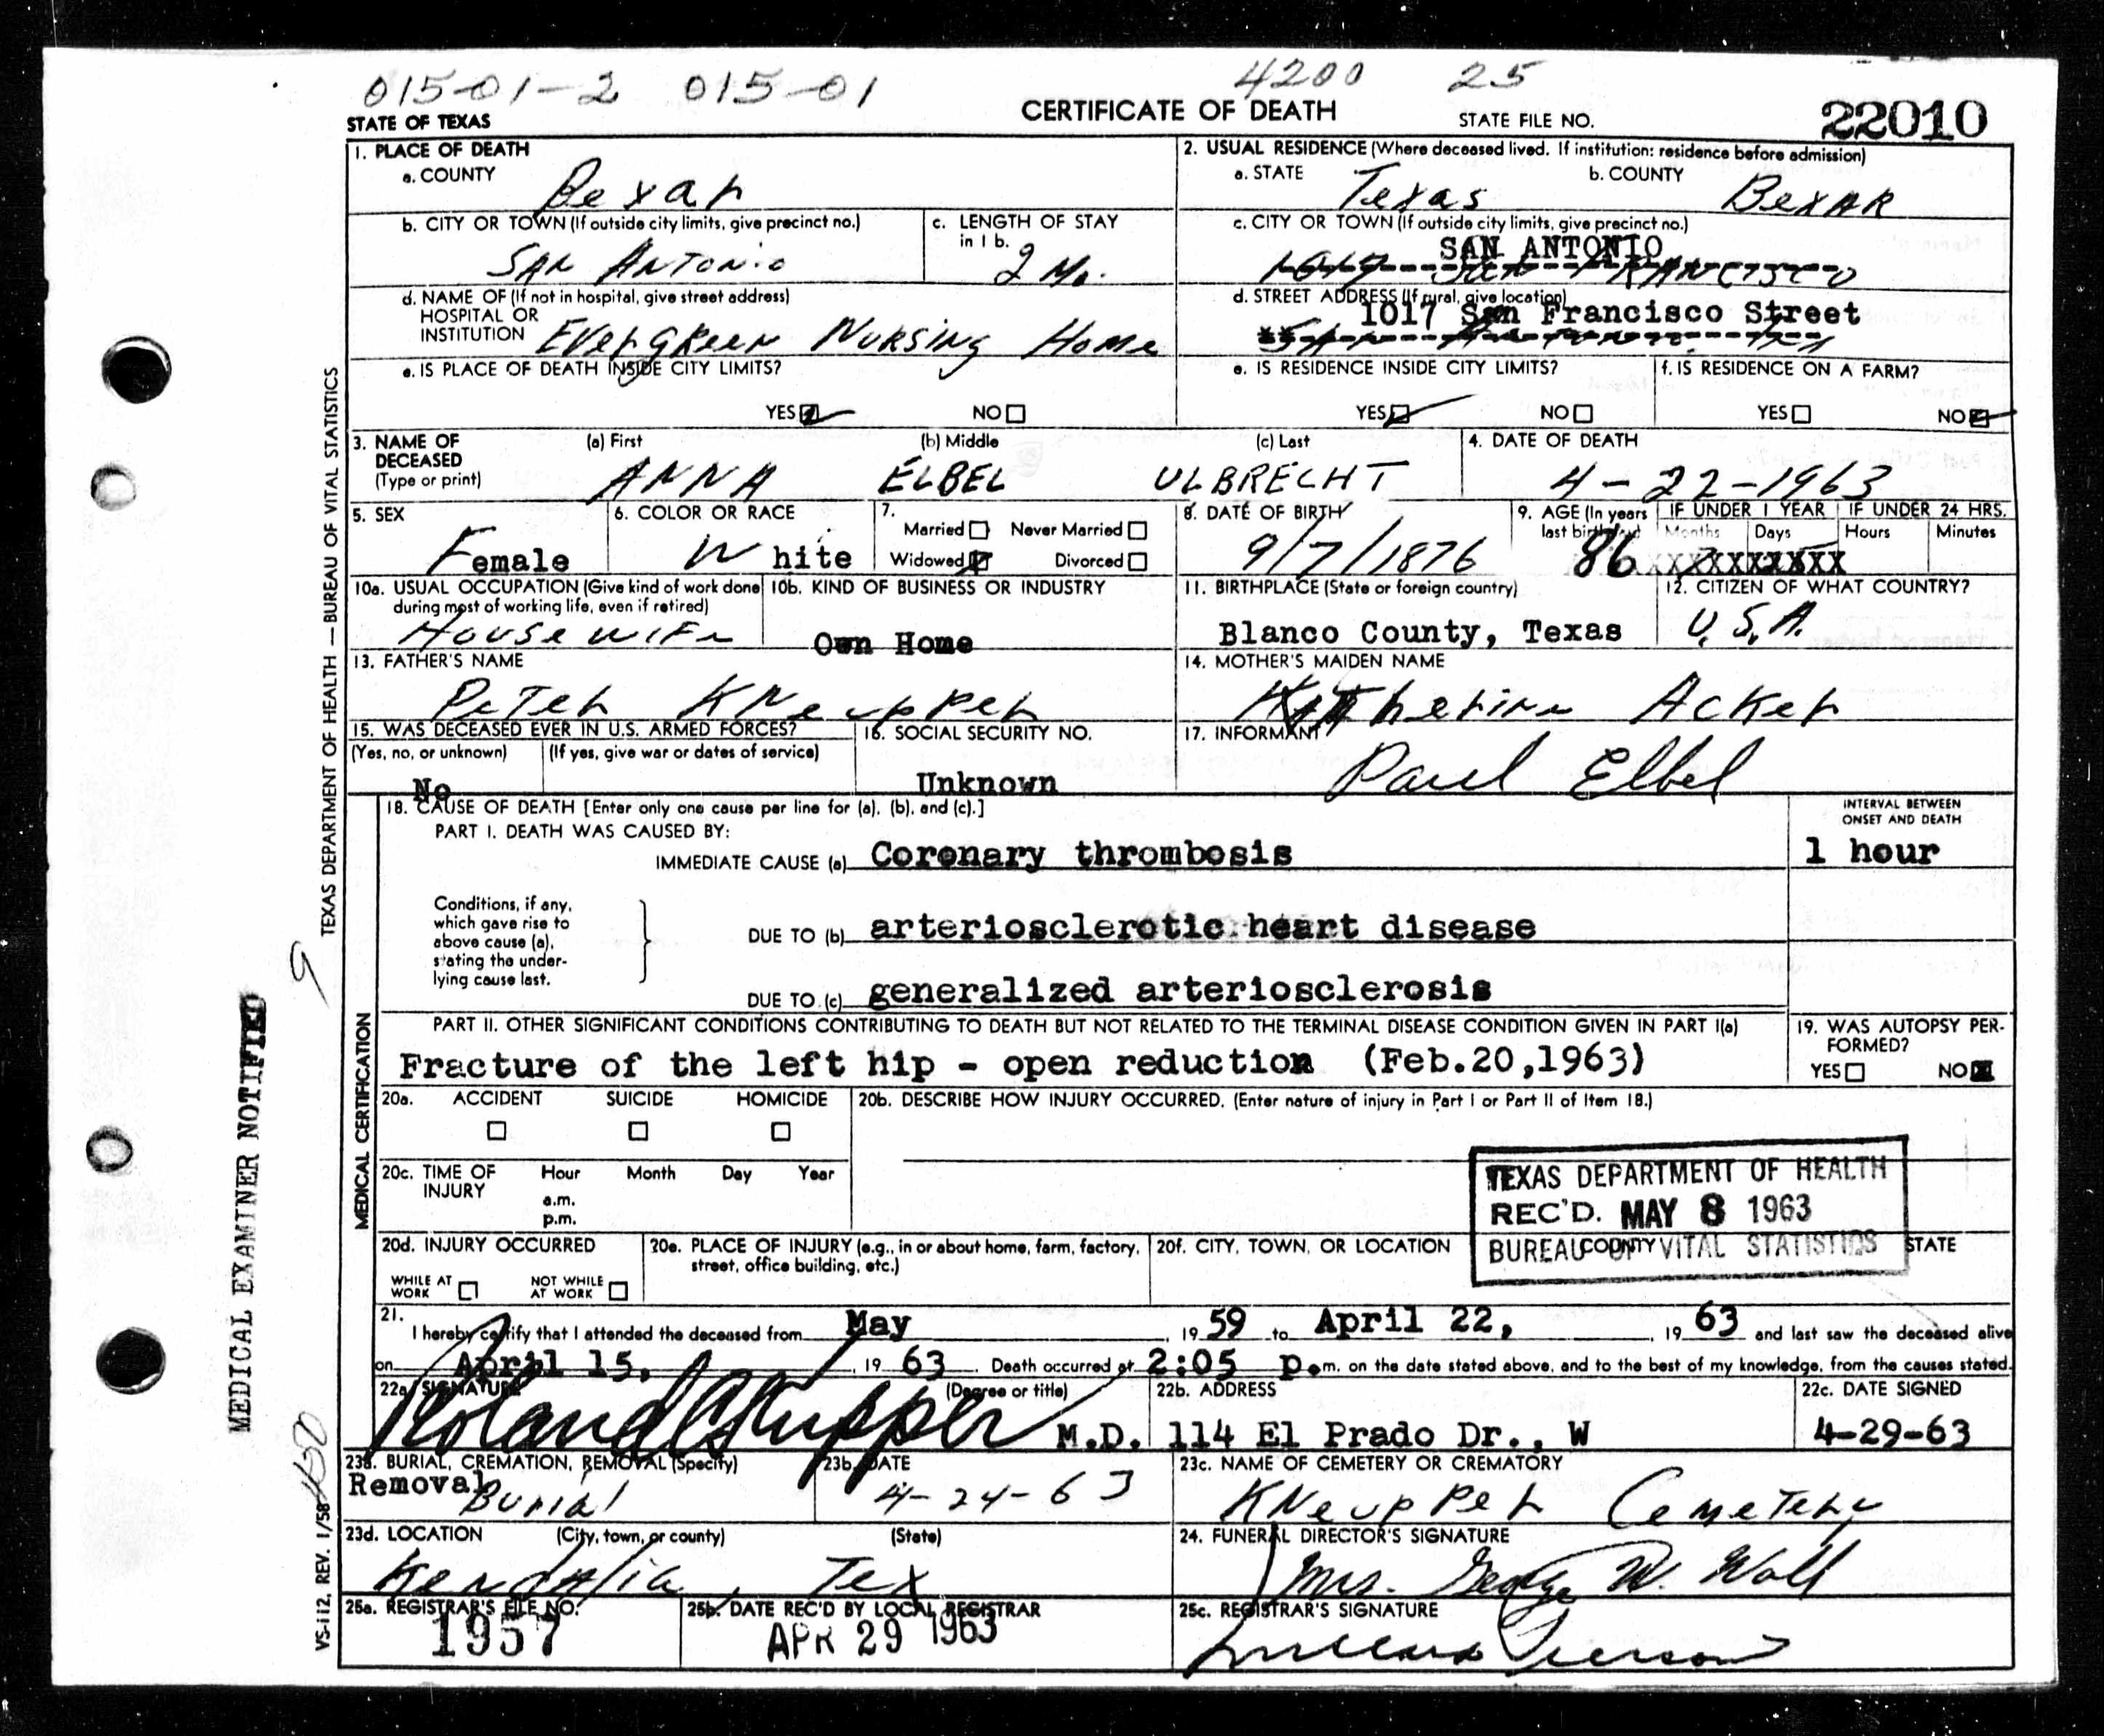 015-01-2 015-01 4200 25
STATE OF TEXAS CERTIFICATE OF DEATH STATE FILE NO. 22010
1. PLACE OF DEATH
a. COUNTY Bexar
2. USUAL RESIDENCE (Where deceased lived. If institution: residence before admission)
a. STATE Texas b. COUNTY BEXAR
b. CITY OR TOWN (If outside city limits, give precinct no.) SAN ANTONIO
c. LENGTH OF STAY in 1 b. 2 Mo.
c. CITY OR TOWN (If outside city limits, give precinct no.)
SAN ANTONIO
d. NAME OF (If not in hospital, give street address)
HOSPITAL OR
INSTITUTION Evergreen Nursing Home
d. STREET ADDRESS (If rural, give location)
1017 San Francisco Street
e. IS PLACE OF DEATH INSIDE CITY LIMITS?
YES NO
e. IS RESIDENCE INSIDE CITY LIMITS?
YES NO
f. IS RESIDENCE ON A FARM?
YES NO
3. NAME OF DECEASED (Type or print)
(a) First (b) Middle (c) Last
ANNA ELBEL ULBRECHT
4. DATE OF DEATH
4-22-1963
5. SEX
Female
6. COLOR OR RACE
White
7. Married Never Married
Widowed Divorced
8. DATE OF BIRTH
9/7/1876
9. AGE (In years last birthday) IF UNDER 1 YEAR IF UNDER 24 HRS.
Months Days Hours Minutes
86
10a. USUAL OCCUPATION (Give kind of work done
during most of working life, even if retired)
Housewife
10b. KIND OF BUSINESS OR INDUSTRY
Own Home
11. BIRTHPLACE (State or foreign country)
Blanco County, Texas
12. CITIZEN OF WHAT COUNTRY?
U.S.A.
13. FATHER'S NAME
Peter Kneupper
14. MOTHER'S MAIDEN NAME
Katherine Acker
15. WAS DECEASED EVER IN U.S. ARMED FORCES?
(Yes, no, or unknown) (If yes, give war or dates of service)
No
16. SOCIAL SECURITY NO.
Unknown
17. INFORMANT
Paul Elbel
18. CAUSE OF DEATH [Enter only one cause per line for (a), (b), and (c).]
PART I. DEATH WAS CAUSED BY:
INTERVAL BETWEEN
ONSET AND DEATH
IMMEDIATE CAUSE (a) Coronary thrombosis 1 hour
Conditions, if any,
which gave rise to
above cause (a),
stating the under-
lying cause last.
DUE TO (b) arteriosclerotic heart disease
DUE TO (c) generalized arteriosclerosis
PART II. OTHER SIGNIFICANT CONDITIONS CONTRIBUTING TO DEATH BUT NOT RELATED TO THE TERMINAL DISEASE CONDITION GIVEN IN PART I(a)
Fracture of the left hip - open reduction (Feb.20,1963)
19. WAS AUTOPSY PER-
FORMED?
YES NO
20a. ACCIDENT SUICIDE HOMICIDE
20b. DESCRIBE HOW INJURY OCCURRED. (Enter nature of injury in Part I or Part II of Item 18.)
20c. TIME OF INJURY Hour Month Day Year
a.m.
p.m.
TEXAS DEPARTMENT OF HEALTH
REC'D. MAY 8 1963
BUREAU OF VITAL STATISTICS
20d. INJURY OCCURRED
WHILE AT WORK NOT WHILE AT WORK
20e. PLACE OF INJURY (e.g., in or about home, farm, factory,
street, office building, etc.)
20f. CITY, TOWN, OR LOCATION COUNTY STATE
21. I hereby certify that I attended the deceased from May, 19 59 to April 22, 19 63 and last saw the deceased alive
on April 15, 19 63 Death occurred at 2:05 p.m. on the date stated above, and to the best of my knowledge, from the causes stated.
22a. SIGNATURE (Degree or title)
M.D.
22b. ADDRESS
114 El Prado Dr., W
22c. DATE SIGNED
4-29-63
23a. BURIAL, CREMATION, REMOVAL (Specify)
Removal Burial
23b. DATE
4-24-63
23c. NAME OF CEMETERY OR CREMATORY
Kneupper Cemetery
23d. LOCATION (City, town, or county) (State)
Kendalia, Tex
24. FUNERAL DIRECTOR'S SIGNATURE
Mrs. George W. Wall
25a. REGISTRAR'S FILE NO.
1957
25b. DATE REC'D BY LOCAL REGISTRAR
APR 29 1963
25c. REGISTRAR'S SIGNATURE
TEXAS DEPARTMENT OF HEALTH — BUREAU OF VITAL STATISTICS
MEDICAL CERTIFICATION
MEDICAL EXAMINER NOTIFIED
9
450
VS-112, REV. 1/58